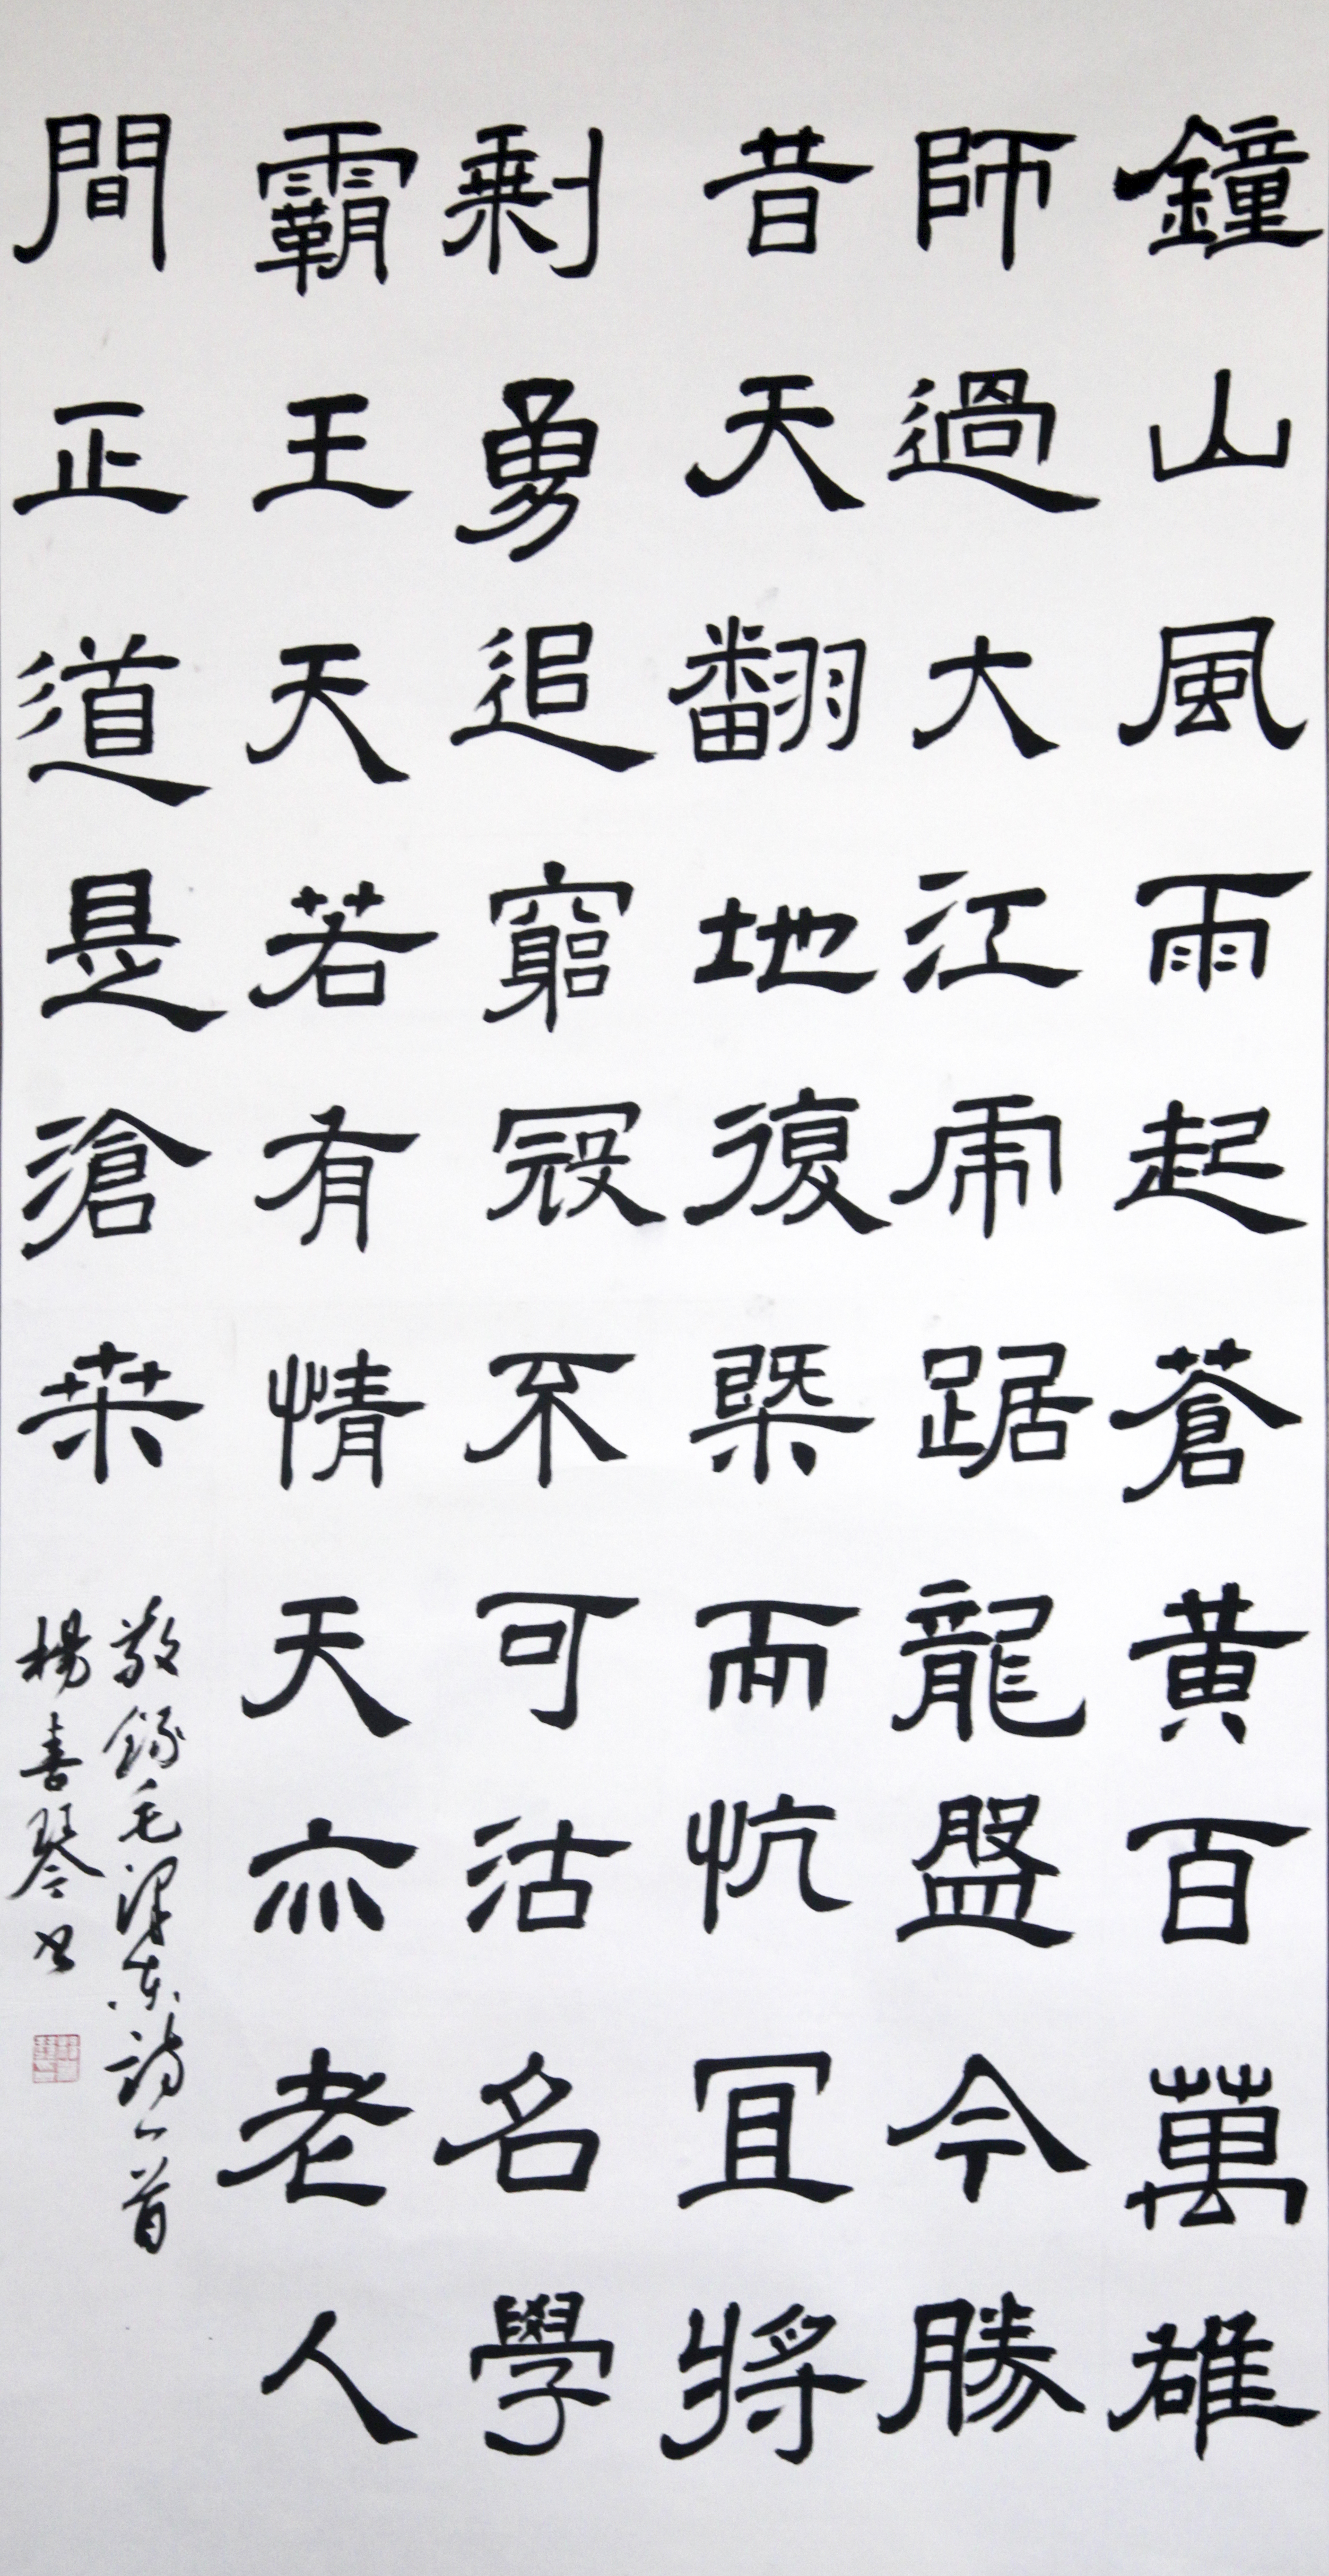 鐘山風雨起蒼黃百萬雄
師過大江虎踞龍盤今勝
昔天翻地復槩而忼宜將
剩勇追窮寇不可沽名學
霸王天若有情天亦老人
間正道是滄桒
敬錄毛澤东詩一首
楊喜琴书